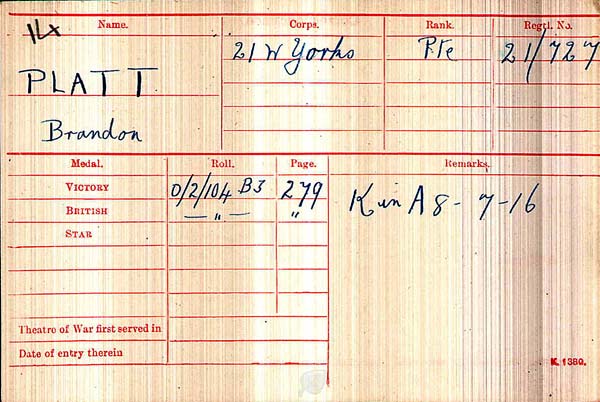 Name. Corps. Rank. Regtl. No.
21 W Yorks Pte 21/727
PLATT
Brandon
Medal. Roll. Page. Remarks.
VICTORY O/2/104 B3 279
BRITISH — " — "
K in A 8-7-16
STAR
Theatre of War first served in
Date of entry therein
K. 1380.